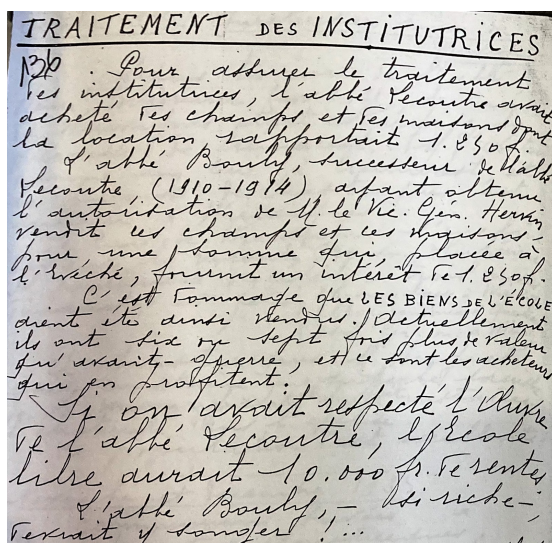 TRAITEMENT DES INSTITUTRICES
136. Pour assurer le traitement
des institutrices, l'abbé Lecoutre avait
acheté des champs, et des maisons dont
la location rapportait 1.250f.
L'abbé Bouly, successeur de l'abbé
Lecoutre, (1910-1914) ayant obtenu
l'autorisation de M. le Vic. Gén. Hervin
vendit ces champs et ces maisons
pour une somme qui, placée à
l'Evêché, fournit un intérêt de 1.250f.
C'est dommage que LES BIENS DE L'ECOLE
aient été ainsi vendus. Actuellement
ils ont six ou sept fois plus de valeur
qu'avant-guerre, et ce sont les acheteurs
qui en profitent.
Si on avait respecté l'Œuvre
de l'abbé Lecoutre, l'Ecole
libre aurait 10.000 fr. de rentes
L'abbé Bouly, - si riche -,
devait y songer !...